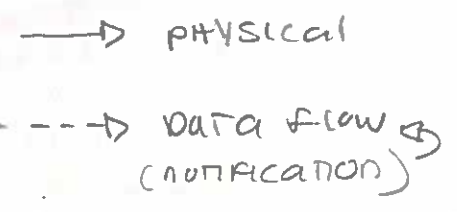 PHYSICAL
DATA FLOW
(NOTIFICATION)